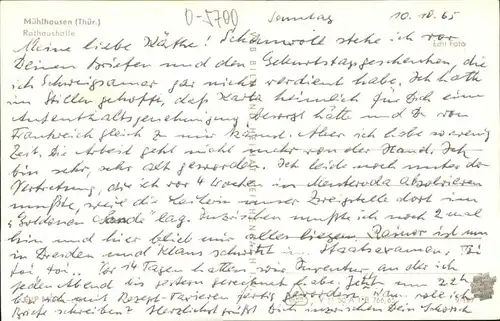 Mühlhausen (Thür.)
Rathaushalle
0-5700
Sonntag 10.10.65
Echt Foto
Meine liebe Käthe! Schamvoll stehe ich vor
Deinen Briefen und den Geburtstagsgeschenken, die
ich Schweigsamer gar nicht verdient habe. Ich hatte
im Stillen gehofft, daß heimlich für Dich eine
Aufenthaltsgenehmigung besorgt hätte und Du von
Frankreich gleich zu mir kämst. Aber ich habe so wenig
Zeit. Die Arbeit geht nicht mehr von der Hand. Ich
bin sehr, sehr alt geworden. Ich leide noch unter der
Vertretung, die ich vor 4 Wochen in absolvieren
mußte, weil die Leiterin unserer Zweigstelle dort im
"Goldenen Sande" lag. Inzwischen mußte ich noch 2 mal
hin und hier blieb mir alles liegen. Rainer ist nun
in Dresden und Klaus schwitzt im Staatsexamen. Toi
toi toi. Vor 14 Tagen hatten wir Inventur an der ich
jeden Abend bis gestern gerechnet habe. Jetzt um 22h
bin ich mit Rezept-Taxieren fertig geworden. Wann soll ich
Briefe schreiben? Herzlichst grüßt Dich